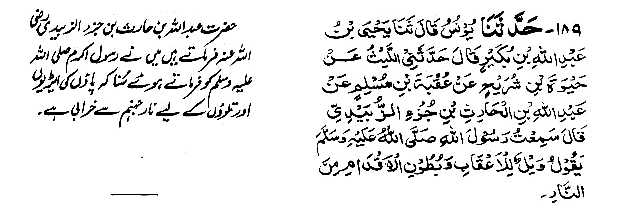 ١٨٩- حَدَّثَنَا يُونُسُ قَالَ ثَنَا يَحْيَى بْنُ
عَبْدِ اللّٰهِ بْنِ بُكَيْرٍ قَالَ حَدَّثَنِي اللَّيْثُ عَنْ
حَيْوَةَ بْنِ شُرَيْحٍ عَنْ عُقْبَةَ بْنِ مُسْلِمٍ عَنْ
عَبْدِ اللّٰهِ بْنِ الْحَارِثِ بْنِ جُزْءِ الزُّبَيْدِيِّ
قَالَ سَمِعْتُ رَسُوْلَ اللّٰهِ صَلَّى اللّٰهُ عَلَيْهِ وَسَلَّمَ
يَقُوْلُ وَيْلٌ لِلْاَعْقَابِ وَبُطُوْنِ الْاَقْدَامِ مِنَ
النَّارِ۔
حضرت عبداللہ بن حارث بن جزء الزبیدی رضی
اللہ عنہ فرماتے ہیں میں نے رسول اکرم صلی اللہ
علیہ وسلم کو فرماتے ہوئے سنا کہ پاؤں کی ایڑیوں
اور تلوؤں کے لیے نار جہنم سے خرابی ہے۔